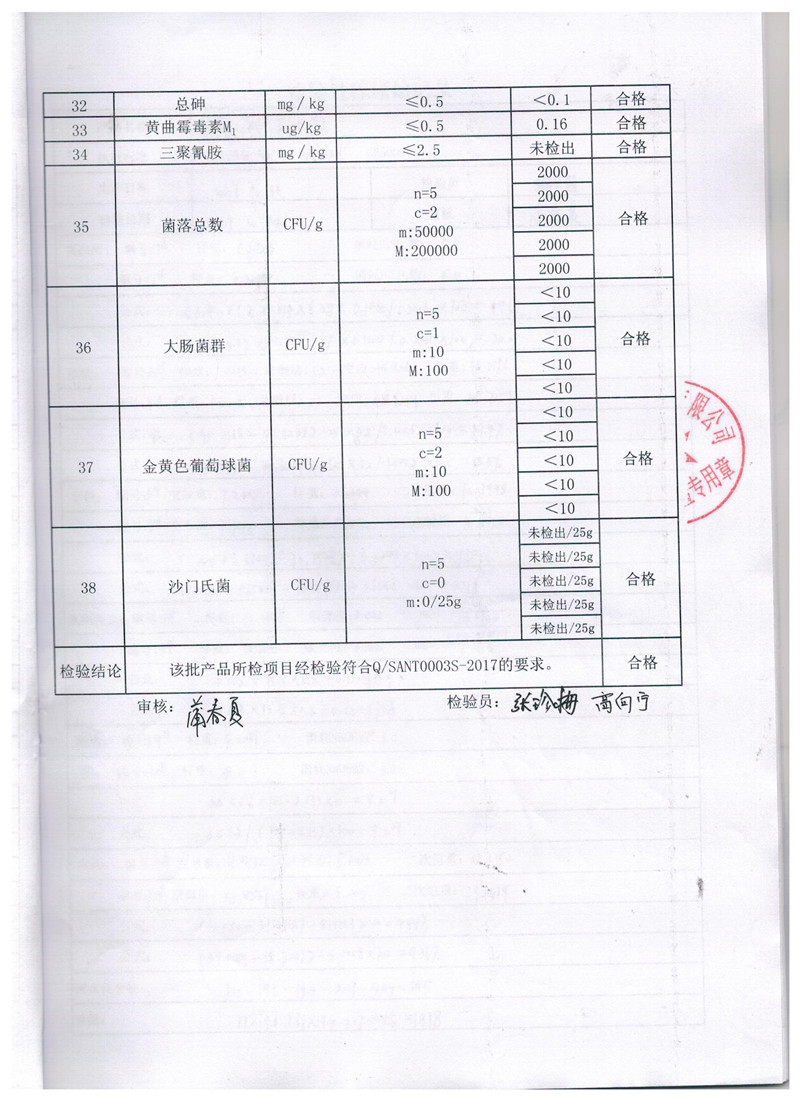 32 总砷 mg/kg ≤0.5 <0.1 合格
33 黄曲霉毒素M₁ ug/kg ≤0.5 0.16 合格
34 三聚氰胺 mg/kg ≤2.5 未检出 合格
35 菌落总数 CFU/g n=5 c=2 m:50000 M:200000 2000 2000 2000 2000 2000 合格
36 大肠菌群 CFU/g n=5 c=1 m:10 M:100 <10 <10 <10 <10 <10 合格
37 金黄色葡萄球菌 CFU/g n=5 c=2 m:10 M:100 <10 <10 <10 <10 <10 合格
38 沙门氏菌 CFU/g n=5 c=0 m:0/25g 未检出/25g 未检出/25g 未检出/25g 未检出/25g 未检出/25g 合格
检验结论 该批产品所检项目经检验符合Q/SANT0003S-2017的要求。 合格
审核: 蒲春夏 检验员: 张珍梅 高向宁
有限公司
专用章